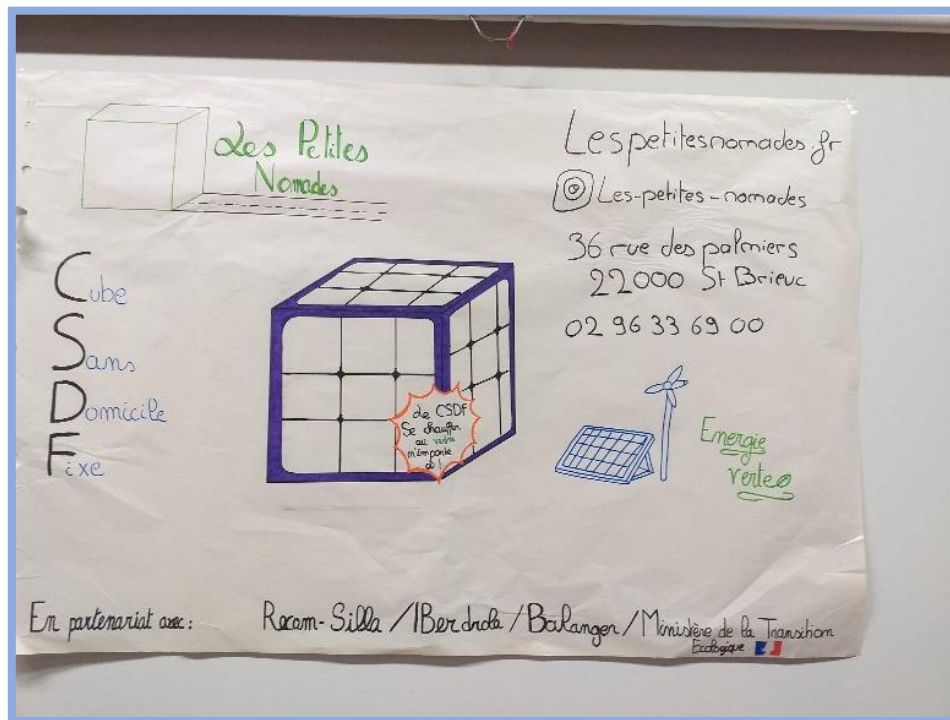 Les Petites
Nomades
Lespetitesnomades.fr
Les-petites-nomades
36 rue des palmiers
22000 St Brieuc
02 96 33 69 00
Cube
Sans
Domicile
Fixe
Le CSDF
Se chauffer
au vert
n'importe
où !
Energie
verte
En partenariat avec : Recam-Silla / IBerdrola / Boulanger / Ministère de la Transition
Ecologique